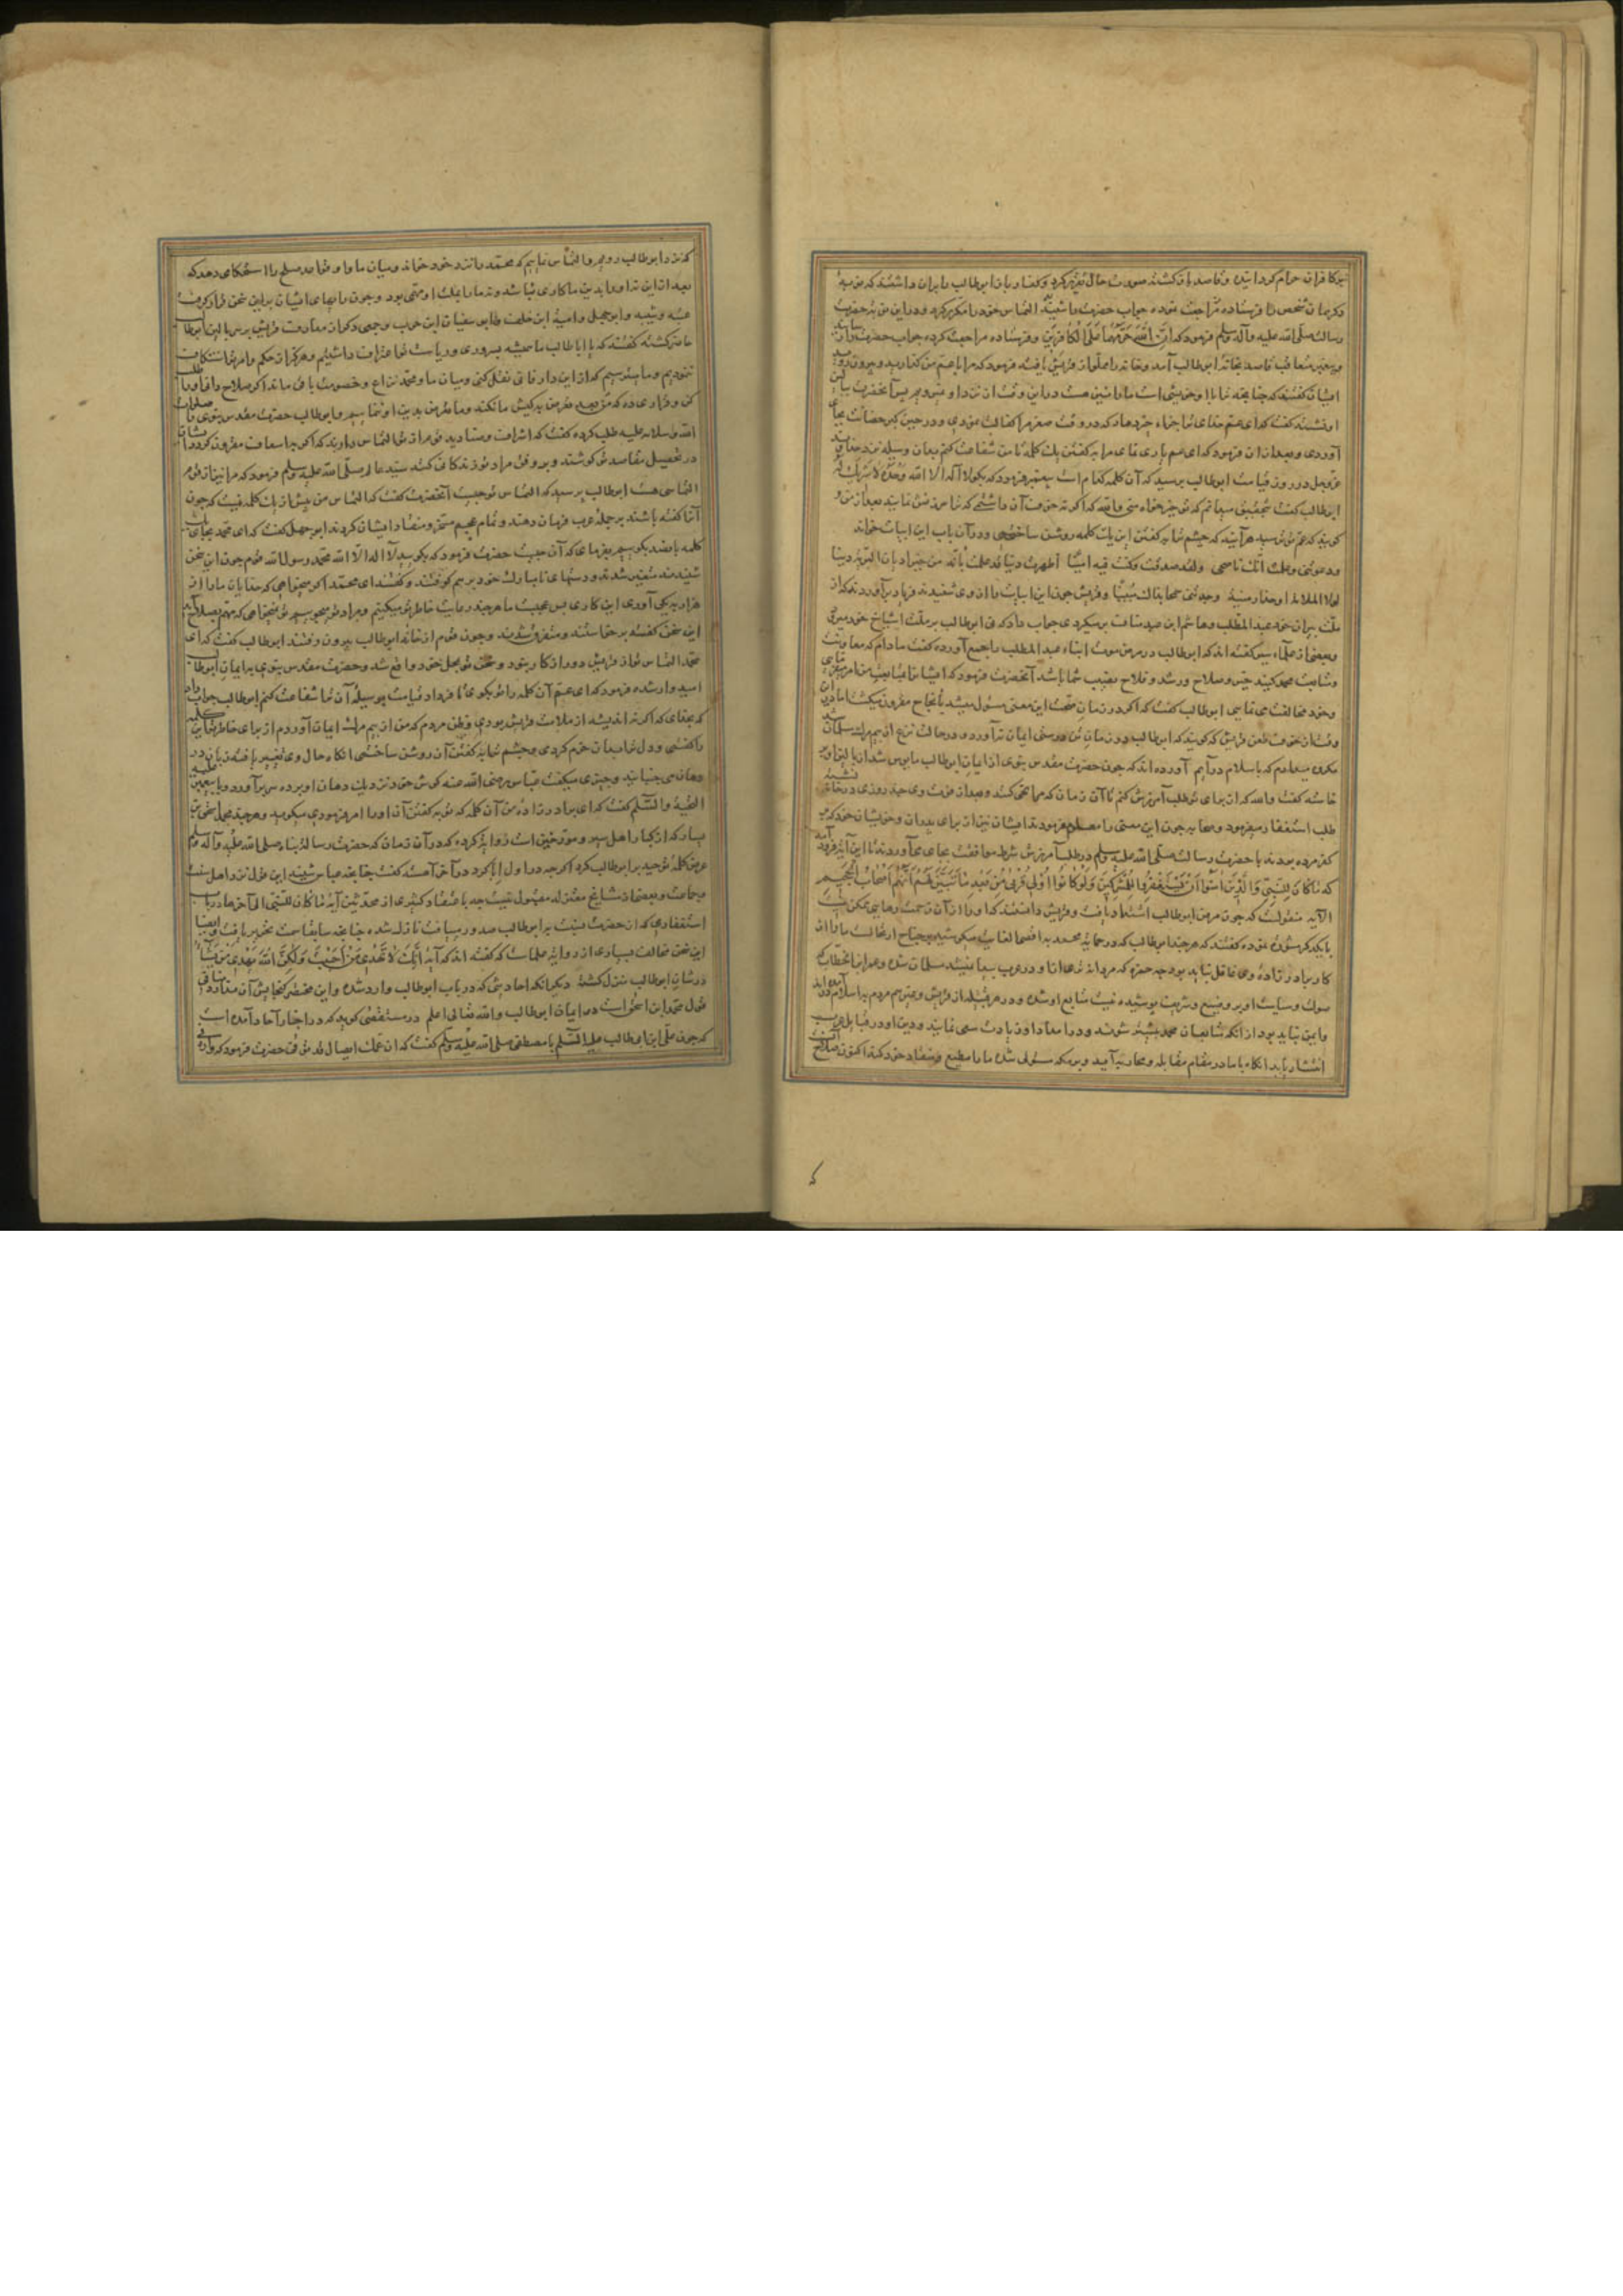 بر کافران حرام گردانیده و قاصد بازگشته صورت حال تقریر کرد و کفار باز ابوطالب را بران داشتند که نوبهٔ
دیگر همان شخص را فرستاده مراجعت نموده جواب حضرت را شنید التماس خود را مکرر کرد و در این مرتبه حضرت
رسالت صلی الله علیه وآله وسلم فرمود که ان الله حرمها علی الکافرین و فرستاده مراجعت کرده جواب حضرت رسانید
و پیغمبر متعاقب قاصد بخانهٔ ابوطالب آمد و خانه را مملو از قریش یافته فرمود که مرا با عم من گذارید و بیرون روید
ایشان گفتند که چنانچه ترا با او خویشی است ما را نیز هست در این وقت از نزد او
او نشسته گفت که ای عم خدای ترا جزاء خیر دهاد که در وقت صغر مرا کفالت نمودی و در حین کبر حضانت بجا
آوردی و بعد از ان فرمود که ای عم یاری نمای مرا بگفتن یک کلمه تا من شفاعت کنم بدان وسیله نزد خدای
عز وجل در روز قیامت ابوطالب پرسید که آن کلمه کدام است پیغمبر فرمود که بگو لا اله الا الله وحده لا شریک له
ابوطالب گفت بتحقیق میدانم که تو خیرخواه منی والله که اگر نه خوف آن داشتمی که ترا سرزنش نمایند بعد از من و
گویند که عم تو ترسید هرآینه که چشم ترا بگفتن این یک کلمه روشن ساختمی و در آن باب این ابیات خواند
ودعوتنی وعلمت انک ناصحی ولقد صدقت وکنت فیه امینا اظهرت دینا قد علمت بانه من خیر ادیان البریه دینا
لولا الملامة او حذار مسبة وجدتنی سمحا بذاک مبینا و قریش چون این ابیات را از وی شنیدند فریاد برآوردند که از
ملت پیران خود عبدالمطلب و هاشم ابن عبد مناف برمیگردی جواب داد که نی ابوطالب بر ملت اشیاخ خود میرود
و بعضی از علماء سیر گفته اند که ابوطالب در مرض موت ابناء عبد المطلب را جمع آورده گفت مادام که معاونت
و متابعت محمد کنید خیر و صلاح و رشد و فلاح نصیب شما باشد آنحضرت فرمود که
و خود مخالفت می نمایی ابوطالب گفت که اگر در زمان صحت این معنی مسئول میشد بانجاح مقرون میگشت اما در این
وقت از خوف طعن قریش که گویند که ابوطالب در زمان تن درستی ایمان نیاورد و در حالت نزع از بیم مرگ مسلمان شد
مکروه میدارم که باسلام درآیم آورده اند که چون حضرت مقدس نبوی از ایمان ابوطالب مایوس شد از بالین او بر
خاسته گفت والله که از برای تو طلب آمرزش کنم تا آن زمان که مرا نهی کنند و بعد از فوت وی چند روزی در خانه نشسته
طلب استغفار میفرمود و صحابه چون این معنی را معلوم فرمودند ایشان نیز از برای پدران و خویشان خود که بر
کفر مرده بودند با حضرت رسالت صلی الله علیه وسلم در طلب آمرزش شرط موافقت بجای می آوردند تا این آیه فرود آمد
که ما کان للنبی والذین آمنوا أن یستغفروا للمشرکین ولو کانوا اولی قربی من بعد ما تبین لهم انهم اصحاب الجحیم
الآیه منقولست که چون مرض ابوطالب اشتداد یافت و قریش دانستند که او را از آن زحمت رهایی ممکن نیست
با یکدیگر مشورت نموده گفتند که هر چند ابوطالب که در حمایت محمد
کار برادر زاده وی غافل نباید بود چه حمزه که مردانه ترین ما و در عرب بیمانند شد مسلمان شده و عمر ابن الخطاب که
صولت و سیاست او بر وضیع و شریف پوشیده نیست متابع او شده و در هر قبیله از قریش و غیرهم مردم به اسلام درآمده اند
و ایمن نباید بود از آنکه متابعان محمد بیشتر شوند و در امداد او زیادت سعی نمایند و دین او در قبایل عرب
انتشار یابد آنگاه با ما در مقام مقابله و محاربه آمده و بر مکه مستولی شده ما را مطیع و منقاد خود کند اکنون صلاح آنست
که نزد ابوطالب رویم و التماس نماییم که محمد را نزد خود خواند و میان ما و او قواعد صلح را استحکامی دهد که
بعد ازین نه او را بدین ما کاری باشد و نه ما را بملت او مهمی بود و چون رایهای ایشان برین سخن قرار گرفت
عتبه و شیبه و ابوجهل و امیة ابن خلف و ابو سفیان ابن حرب و جمعی دیگر از معارف قریش بر سر بالین ابوطالب
حاضر گشته گفتند که یا اباطالب ما همیشه بسروری و ریاست تو اعتراف داشتیم و هرگز از حکم و امر تو استنکاف
ننمودیم و ما میترسیم که ازین دار فانی نقل کنی و میان ما و محمد نزاع و خصومت باقی ماند اکنون صلاح
کن و قراری ده که متعرض کیش ما نگردد و ما متعرض بدین او نشویم و ابوطالب حضرت مقدس نبوی را صلوات
الله وسلامه علیه طلب کرده گفت که اشراف و صنادید قوم از تو التماس دارند که اگر با سعاف مقرون گردد ایشان
در تحصیل مقاصد تو کوشند و بر وفق مراد تو زندگانی کنند سید عالم صلی الله علیه وسلم فرمود که مرا نیز از قوم
التماسی هست ابوطالب پرسید که التماس تو چیست آنحضرت گفت که التماس من بیش از یک کلمه نیست که چون
آنرا گفته باشند بر جملهٔ عرب فرمان دهند و تمام عجم مسخر و منقاد ایشان گردند ابوجهل گفت که ای محمد بجای یک
کلمه پانصد بگوییم بفرمای که آن چیست حضرت فرمود که بگویید لا اله الا الله محمد رسول الله قوم چون این سخن
شنیدند متغیر شدند و دستهای نامبارک خود بر هم کوفتند و گفتند ای محمد اگر میخواهی که خدایان ما را از
هزار به یکی آوری این کاری بس عجیبست ما هر چند رعایت خاطر تو میکنیم و مراد تو میجوییم تو نمیخواهی که مهم بصلاح آید
این سخن گفته برخاستند و متفرق شدند و چون قوم از خانه ابوطالب بیرون رفتند ابوطالب گفت که ای
محمد التماس تو از قریش دور از کار نبود و سخن تو بمحل خود واقع شد و حضرت مقدس نبوی به ایمان ابوطالب
امیدوار شده فرمود که ای عم آن کلمه را تو بگوی تا فردا قیامت بوسیلهٔ آن ترا شفاعت کنم ابوطالب جواب داد
که بخدای که اگر نه اندیشه از ملامت قریش بودی و ظن مردم که من از بیم مرگ ایمان آوردم از برای خاطر تو این کلمه
را گفتمی و دل ترا بدان خرم کردمی و چشم ترا به گفتن آن روشن ساختمی آنگاه حال وی تغییر یافته زبان در
دهان می جنبانید و چیزی میگفت عباس رضی الله عنه گوش خود نزدیک دهان او برده سر برآورد و با پیغمبر علیه
التحیة والسلام گفت که ای برادر زاده من آن کلمه که تو به گفتن آن او را امر فرمودی میگوید و هر چند
یسار که از کبار اهل سیر و مورخین است روایت کرده که در آن زمان که حضرت رسالت پناه صلی الله علیه وآله وسلم
عرض کلمهٔ توحید بر ابوطالب کرد اگر چه در اول ابا کرد در آخر آهسته گفت چنانچه عباس شنید این قول نزد اهل سنت
و جماعت و بعضی از مشایخ معتزله مقبول نیست چه باعتقاد کثیری از محدثین آیهٔ ما کان للنبی الی آخرها در باب
استغفاری که از حضرت نسبت به ابوطالب صدور مییافت نازل شده چنانچه سابقا سمت تحریر یافت و ایضا
این سخن مخالف بسیاری از روایات علماست که گفته اند که آیهٔ إنک لا تهدی من أحببت ولکن الله یهدی من یشآء
در شان ابوطالب منزل گشته دیگر آنکه احادیثی که در باب ابوطالب وارد شده و این مختصر گنجایش آن ندارد منافی
قول محمد ابن اسحق است در ایمان ابوطالب والله تعالی اعلم در مستقصی گوید که در اخبار آحاد آمده است
که چون علی ابن ابی طالب علیه السلام با مصطفی صلی الله علیه وسلم گفت که ان عمک الضال قد توفی حضرت فرمود که واره